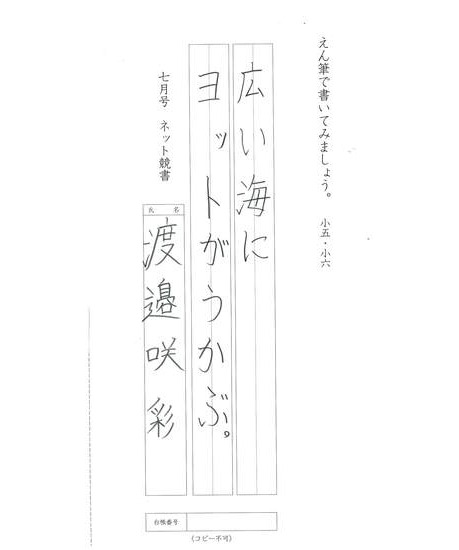 えん筆で書いてみましょう。 小五・小六
広い海に
ヨットがうかぶ。
七月号 ネット競書
氏名
渡邉咲彩
台帳番号
(コピー不可)